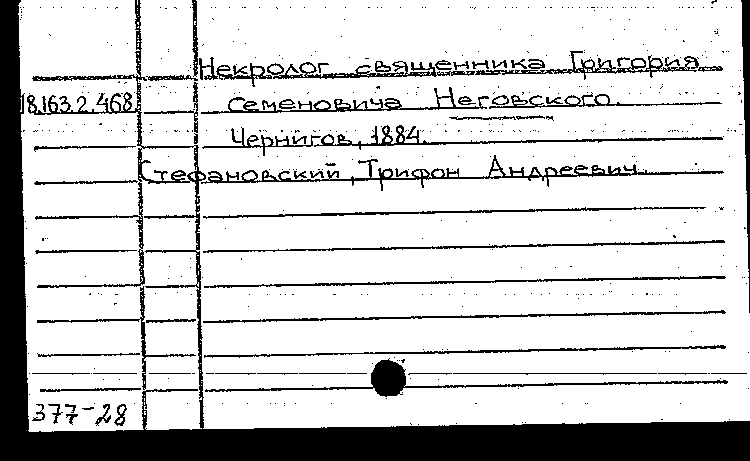 Некролог священника Григория
18.163.2.468. Семеновича Неговского.
Чернигов, 1884.
Стефановский, Трифон Андреевич.
377-28